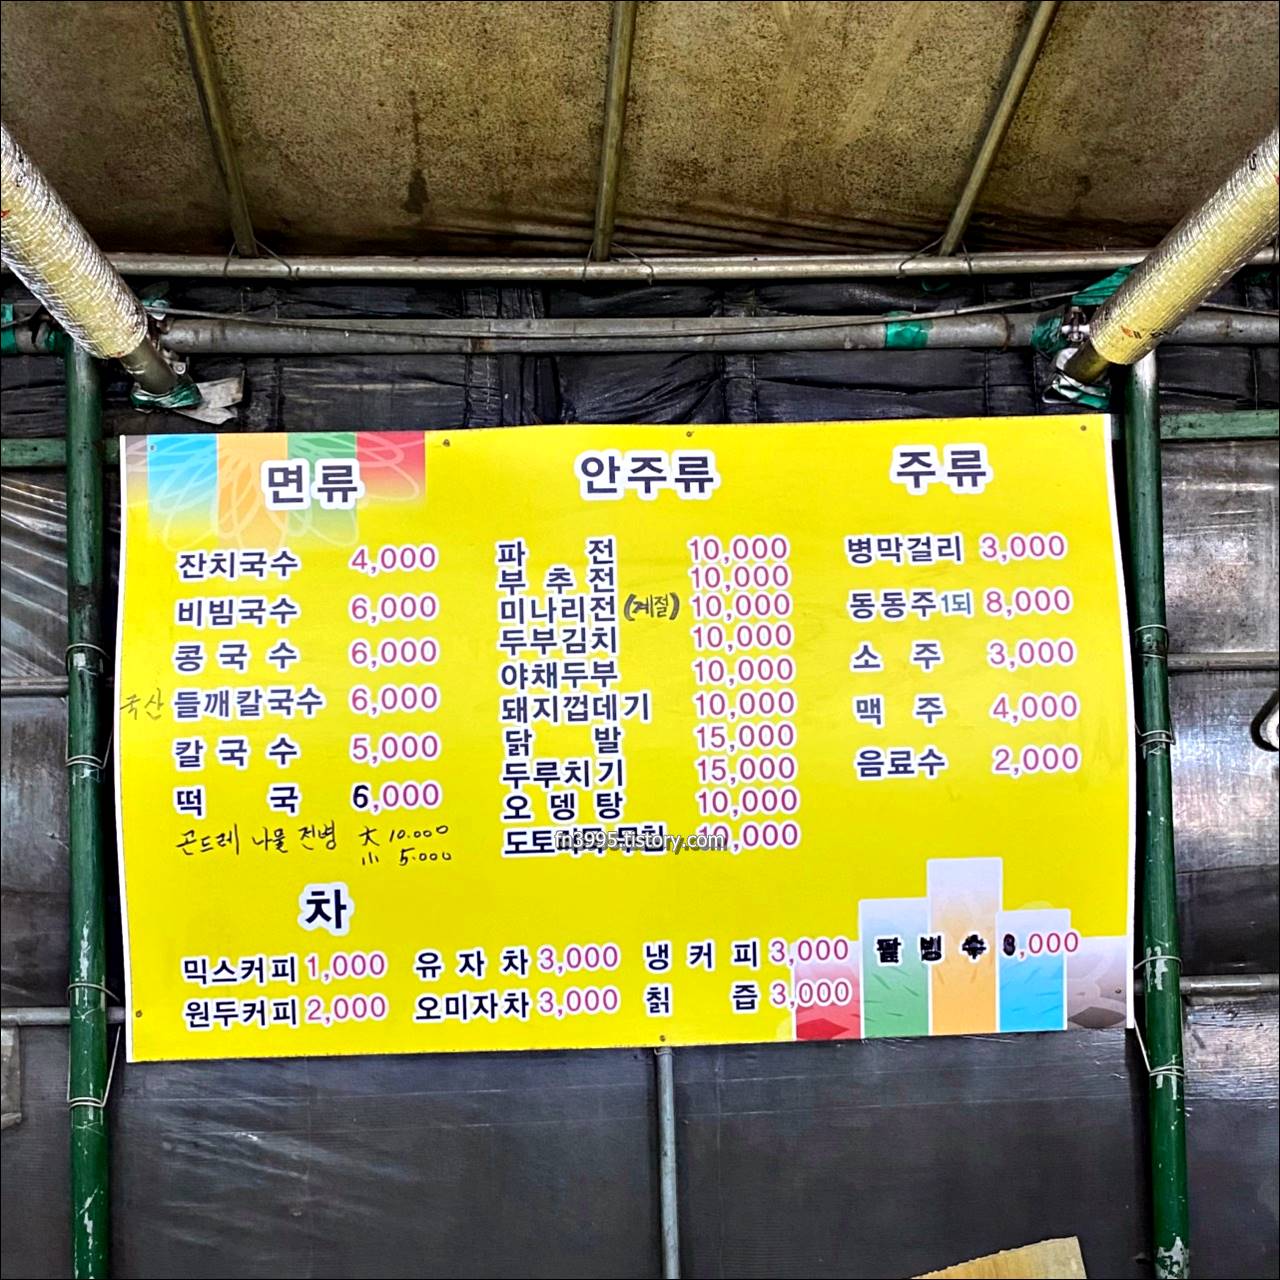 면류
잔치국수 4,000
비빔국수 6,000
콩국수 6,000
국산 들깨칼국수 6,000
칼국수 5,000
떡국 6,000
곤드레 나물 전병 大 10.000
小 5.000
안주류
파전 10,000
부추전 10,000
미나리전 (계절) 10,000
두부김치 10,000
야채두부 10,000
돼지껍데기 10,000
닭발 15,000
두루치기 15,000
오뎅탕 10,000
도토리묵무침 10,000
fn3995.tistory.com
주류
병막걸리 3,000
동동주1되 8,000
소주 3,000
맥주 4,000
음료수 2,000
차
믹스커피 1,000 유자차 3,000 냉커피 3,000 팥빙수
원두커피 2,000 오미자차 3,000 칡즙 3,000